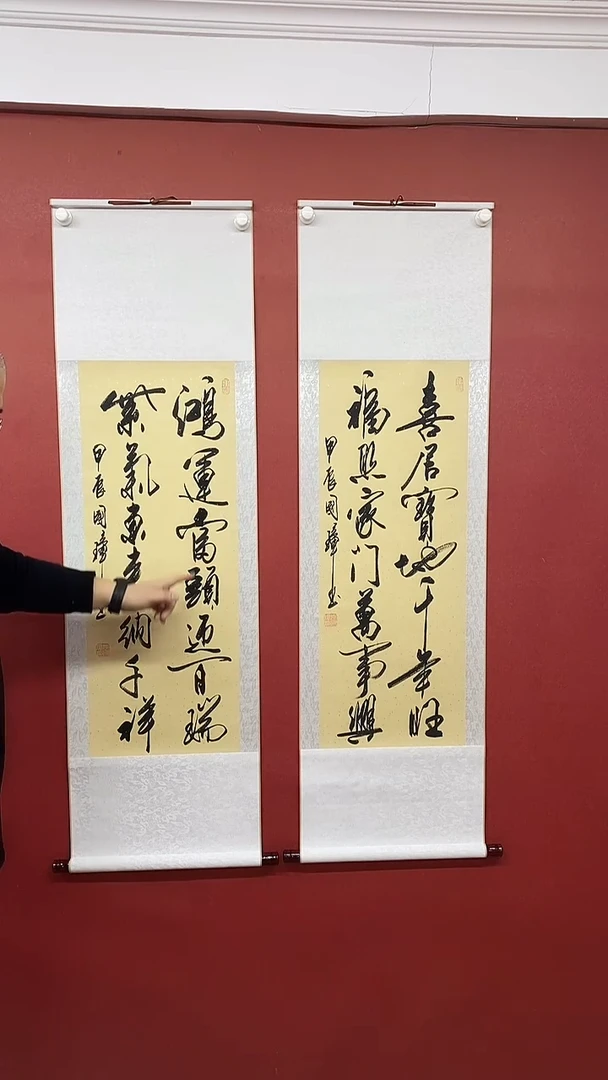 喜居寶地千年旺
福照家门萬事興
甲辰國璋书
鴻運當頭迎百瑞
紫氣東来納千祥
甲辰國璋